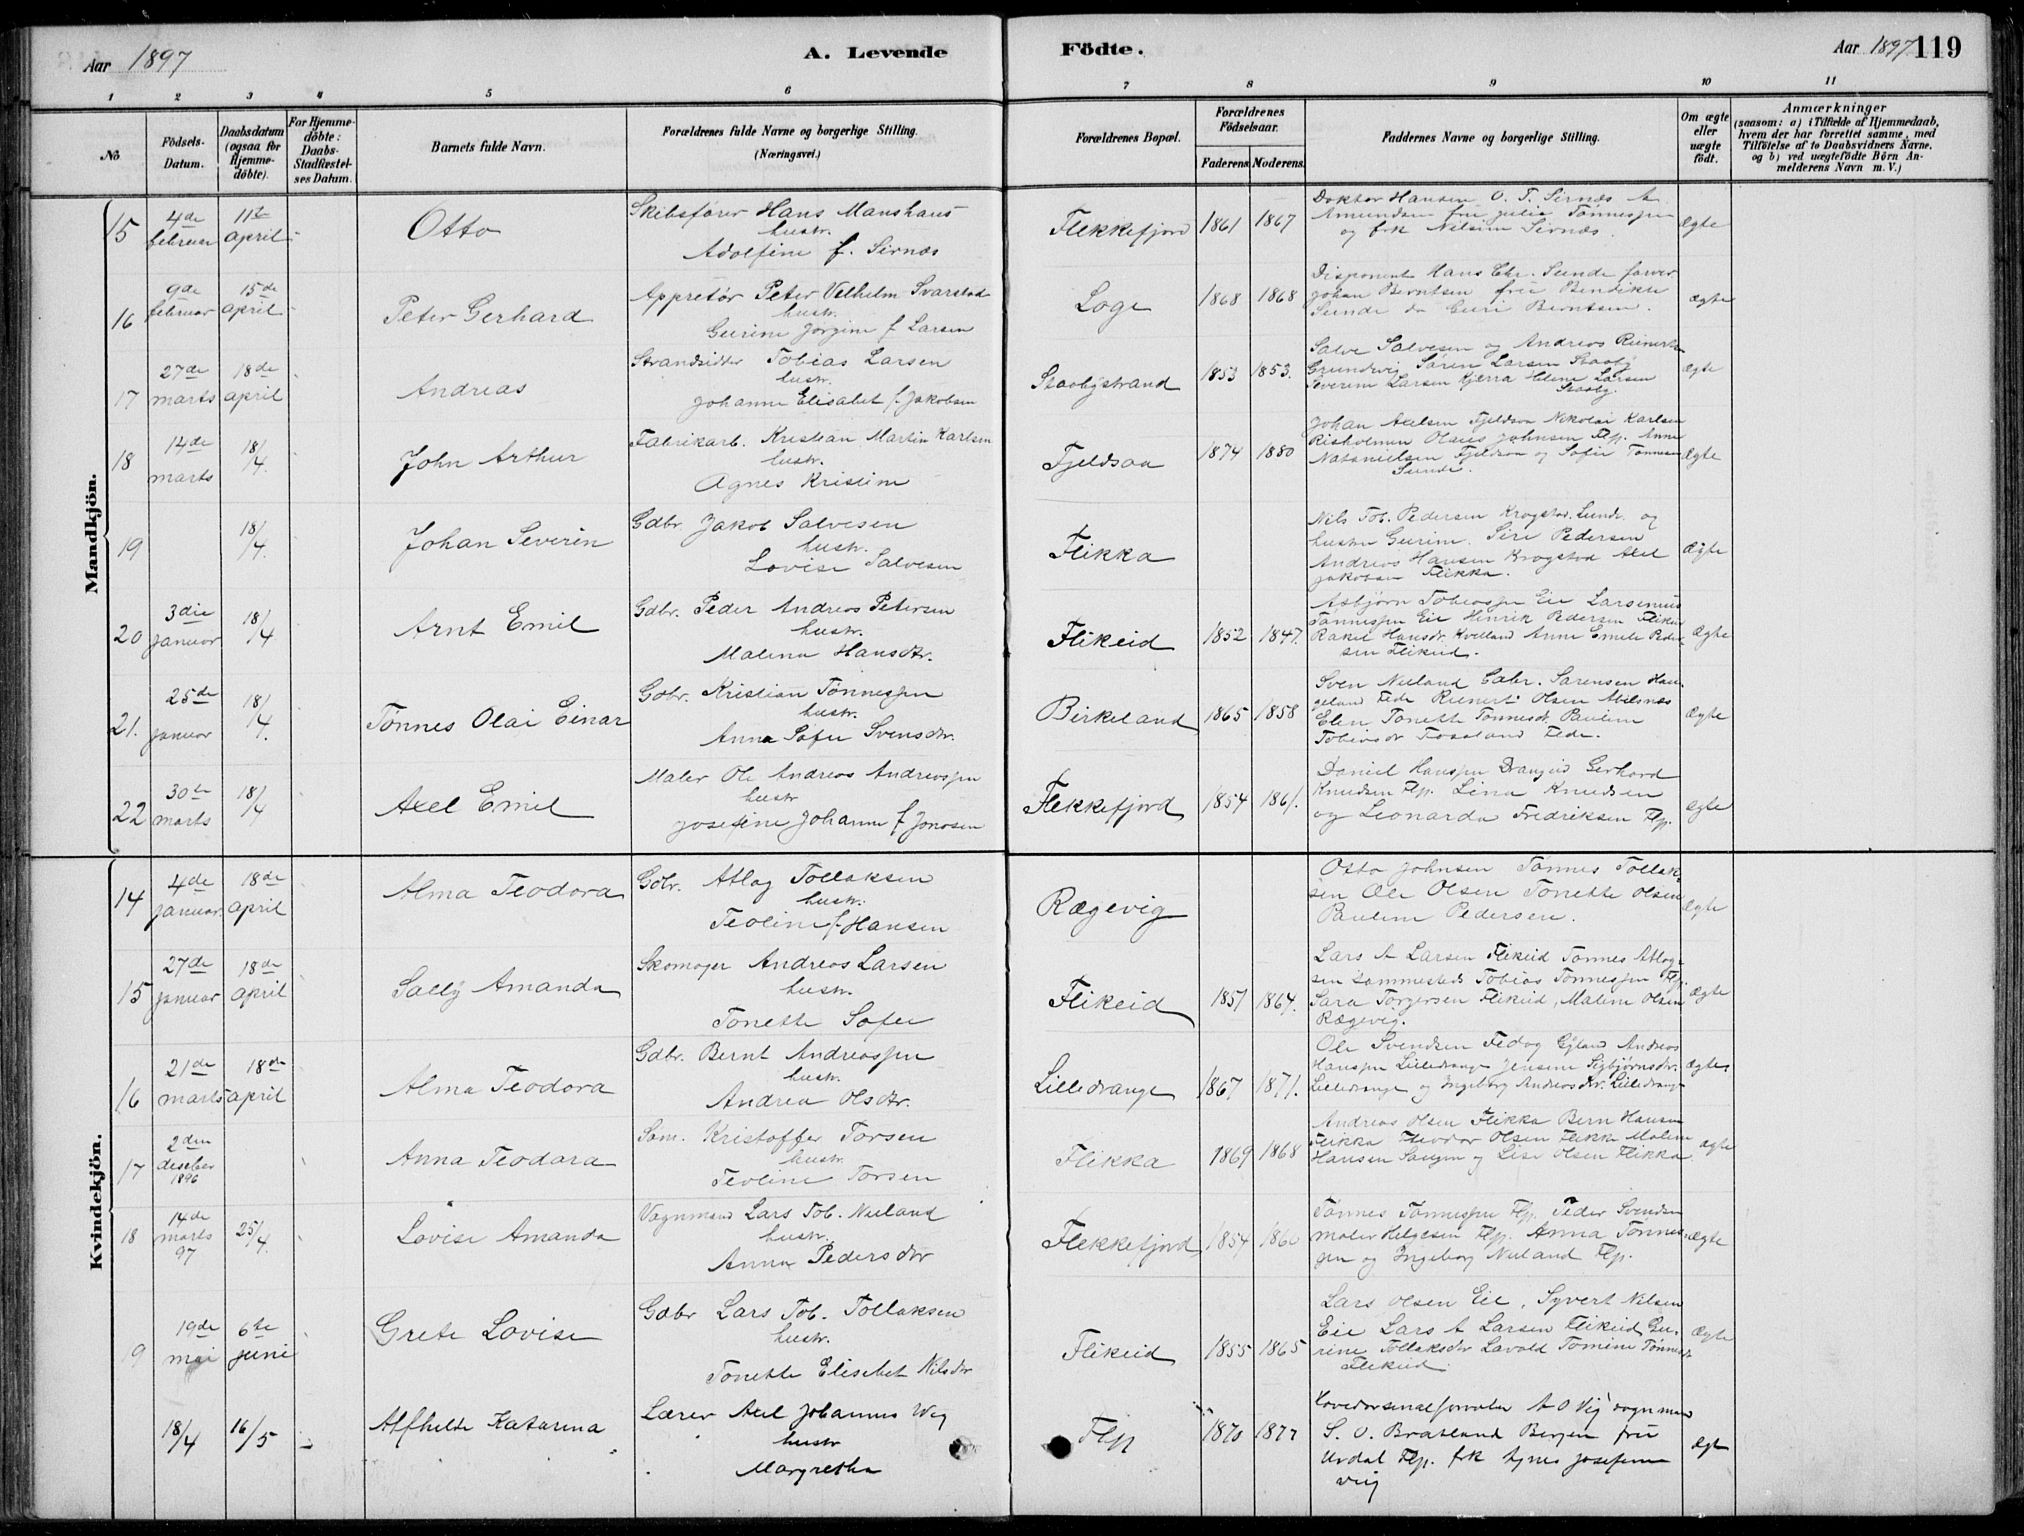 Aar 1897
A. Levende
Födte.
Aar 1897
119
1 2 3 4 5 6 7 8 9 10 11
No
Födsels-
Datum.
Daabsdatum
(ogsaa for
Hjemme-
döbte).
For Hjemme-
döbte:
Daabs-
Stadfæstel-
ses Datum.
Barnets fulde Navn.
Forældrenes fulde Navne og borgerlige Stilling.
(Næringsvei.)
Forældrenes Bopæl.
Forældrenes
Födselsaar.
Faderens Moderens.
Faddernes Navne og borgerlige Stilling.
Om ægte
eller
uægte
födt.
Anmærkninger
(saasom: a) i Tilfælde af Hjemmedaab,
hvem der har forrettet samme, med
Tilföielse af to Daabsvidners Navne,
og b) ved uægtefödte Börn An-
melderens Navn m. V.)
Mandkjön.
15 4de februar 11te april Otto
Skibsfører Hans Manshaus
hustr.
Adolfine f. Sirnæs
Flekkefjord 1861 1867
Doktor Hansen O. T. Sirnæs A.
Amundsen fru Julia Tønnessen
og frk Nilsine Sirnæs.
Ægte
16 9de februar 15de april Peter Gerhard
Appretør Peter Vilhelm Svarstad
hustr.
Gurine Jorgine f Larsen
Loge 1868 1868
Disponent Hans Chr. Sunde farver
Johan Berntsen fru Bendikte
Sunde do Guri Berntsen.
ægte
17 27de marts 18de april Andreas
Strandsidder Tobias Larsen
hustr.
Johanne Elisabet f. Jakobsen
Staabystrand 1853 1853.
Salve Salvesen og Andreas
Grundvig Søren Larsen Staaby
Severin Larsen Kjerra Helene Larsen
Staaby.
ægte
18 14de marts 18/4. John Arthur
Fabrikarb. Kristian Martin Karlsen
hustr.
Agnes Kristine
Fjeldsaa 1874 1880
Johan Axelsen Fjeldsaa Nikolai Karlsen
Risholmen Olaus Johnsen Flp. Anne
Natanielsen Fjeldsaa og Sofie Tønnesen
Sunde.
Ægte
19 18/4. Johan Severin
Gdbr. Jakob Salvesen
hustr.
Lovise Salvesen
Flikka
Nils Tob. Pedersen Krogstad. Sunde. og
hustru Gurine. Siri Pedersen
Andreas Hansen Krogstad Axel
Jakobsen Flikka.
Ægte
20 3die januar 18/4 Arnt Emil
Gdbr. Peder Andreas Petersen
hustr.
Malena Hansdtr.
Flikeid 1852 1847.
Asbjørn Tobiassen Eie Larsenius
Tønnessen Eie Hinrik Pedersen Flikeid
Rakel Hansdtr. Kvelland Anne Emelie Peder-
sen Flikeid.
Ægte
21. 25de januar 18/4. Tønnes Olai Einar
Gdbr. Kristian Tønnessen
hustr.
Anna Sofie Svensdtr.
Birkeland 1865 1858
Sven Nuland Gabr. Sørensen Hau-
geland Fede Reinert Olsen Abelsnæs
Elen Tonette Tønnesdtr Pauline
Tobiasdtr Fosseland Fede.
Ægte
22 30te marts 18/4 Axel Emil
Maler Ole Andreas Andreassen
hustr
Josefine Johanne f Jonasen
Flekkefjord 1854 1861.
Daniel Hanssen Drangeid Gerhard
Knudsen Flp. Lina Knudsen
og Leonarda Fredriksen Flp.
ægte
Kvindekjön.
14 4de januar. 18de april Alma Teodora
Gdbr. Atlag Tollaksen
hustr.
Teoline f. Hansen
Rægevig
Otto Johnsen Tønnes Tollak-
sen Ole Olsen Tonette Olsen
Pauline Pedersen.
Ægte
15 27de januar 18de april Sally Amanda
Skomager Andreas Larsen
hustr.
Tonette Sofie
Flikeid 1851 1864.
Lars A Larsen Flikeid Tønnes Atlag-
sen sammesteds Tobias Tønnessen Flp.
Sara Torgersen Flikeid, Malene Olsen
Rægevig.
Ægte
16 21de marts 18de april Alma Teodora
Gdbr. Bernt Andreassen
hustr.
Andrea Olsdtr.
Lilledrange 1867 1871.
Ole Svendsen Fedog Gyland Andreas
Hanssen Lilledrange Jensine Sigbjørnsdtr.
Lilledrange og Ingeborg Andreasdtr. Lilledrange
Ægte
17 2den desember 1896 Anna Teodora
Søm. Kristoffer Torsen
hustr.
Teoline Torsen
Flikka 1869 1868
Andreas Olsen Flikka Bern Hansen
Flikka Theodor Olsen Flikka Malene
Hansen og Lise Olsen Flikka
ægte
18 14de marts 97 25/4. Lovise Amanda
Vognmand Lars Tob. Nuland
hustr.
Anna Pedersdtr
Flekkefjord 1854 1860
Tønnes Tønnessen Flp. Peder Svendsen
maler Helgesen Flp. Anna Tønnes-
sen og Ingeborg Nuland Flp.
Ægte
9 19de mai 6te juni Grete Lovise
Gdbr Lars Tob. Tollaksen
hustr.
Tonette Elisebet Nilsdtr
Flikeid 1855 1865
Lars Olsen Eie, Syvert Nilsen
Eie Lars A Larsen Flikeid Gu-
rine Tollaksdtr Lavold Tomine Tønnesdtr
Flikeid.
Ægte
18/4 16/5 Alfhilde Katarina
Lærer Axel Johannes Wig
hustr
Margretha
Flp 1870 1877
A O Vig vognmand
S. O. Bratland Bergen fru
Urdal Flp. frk Agnes Josefine
Viig
Ægt